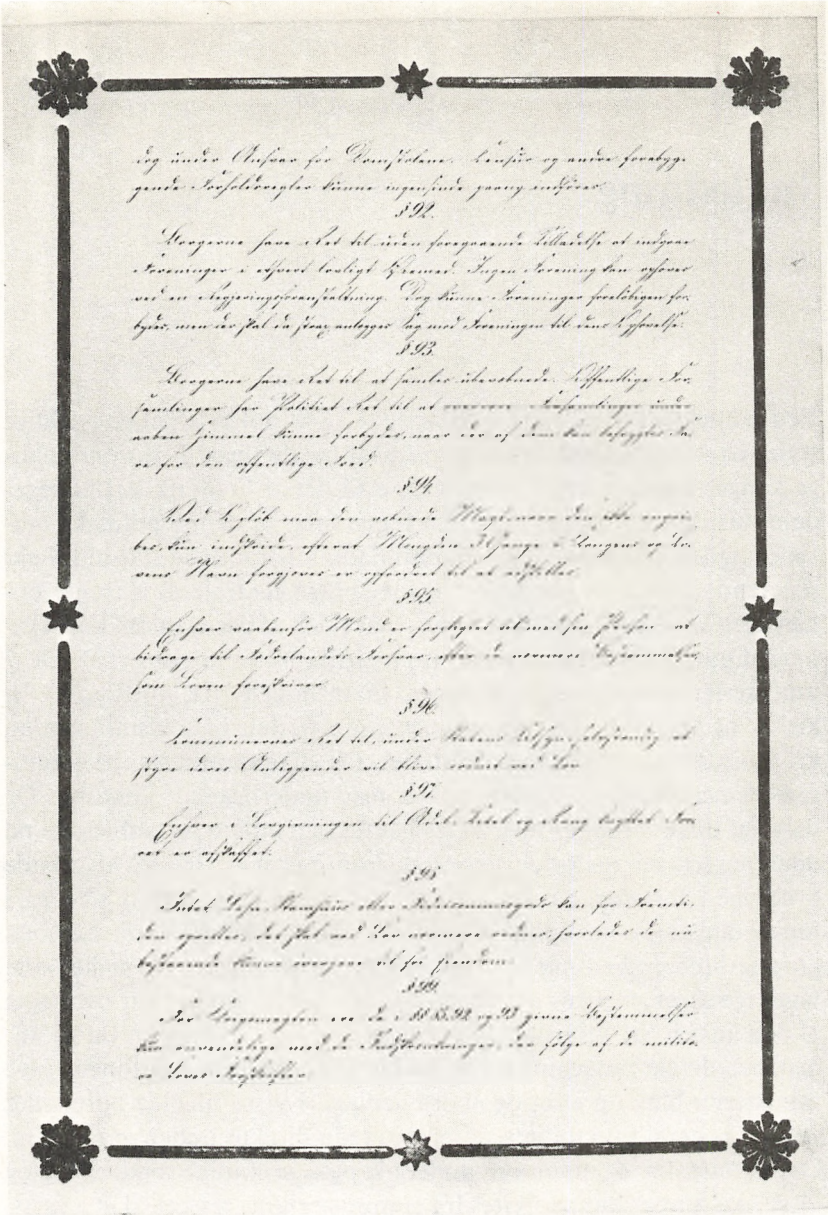 dog under Ansvar for Domstolene. Censur og andre forebyg-
gende Forholdsregler kunne ingensinde paany indføres.
§92.
Borgerne have Ret til uden foregaaende Tilladelse at indgaae
Foreninger i ethvert lovligt Øiemed. Ingen Forening kan ophæves
ved en Regjeringsforanstaltning. Dog kunne Foreninger foreløbigen for-
bydes, men der skal da strax anlægges Sag mod Foreningen til dens Ophævelse.
§93.
Borgerne have Ret til at samles ubevæbnede. Offentlige For-
samlinger har Politiet Ret til at overvære. Forsamlinger under
aaben Himmel kunne forbydes, naar der af dem kan befrygtes Fa-
re for den offentlige Fred.
§94.
Ved Opløb maa den væbnede Magt, naar den ikke angri-
bes, kun indskride, efterat Mængden 3 Gange i Kongens og Lo-
vens Navn forgjæves er opfordret til at adskilles.
§95.
Enhver vaabenfør Mand er forpligtet til med sin Person at
bidrage til Fædrelandets Forsvar, efter de nærmere Bestemmelser,
som Loven foreskriver.
§96.
Communernes Ret til, under Statens Tilsyn, selvstændig at
styre deres Anliggender vil blive ordnet ved Lov.
§97.
Enhver i Lovgivningen til Adel, Titel og Rang knyttet For-
ret er afskaffet.
§98.
Intet Lehn, Stamhuus eller Fideicommisgods kan for Fremti-
den oprettes, det skal ved Lov nærmere ordnes, hvorledes de nu
bestaaende kunne overgaae til fri Eiendom.
§99.
For Krigsmagten ere de i §§ 85, 92 og 93 givne Bestemmelser
kun anvendelige med de Indskrænkninger, der følge af de militæ-
re Loves Forskrifter.